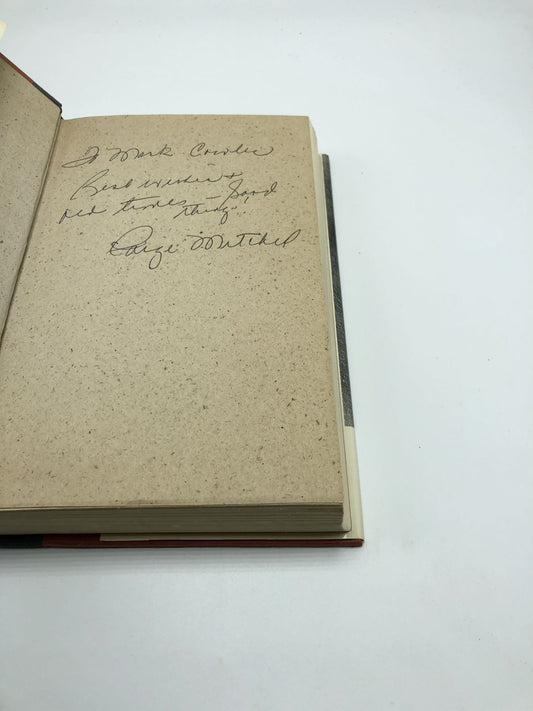 To Mark
Best wishes &
old times — good
things!
Paige Mitchell